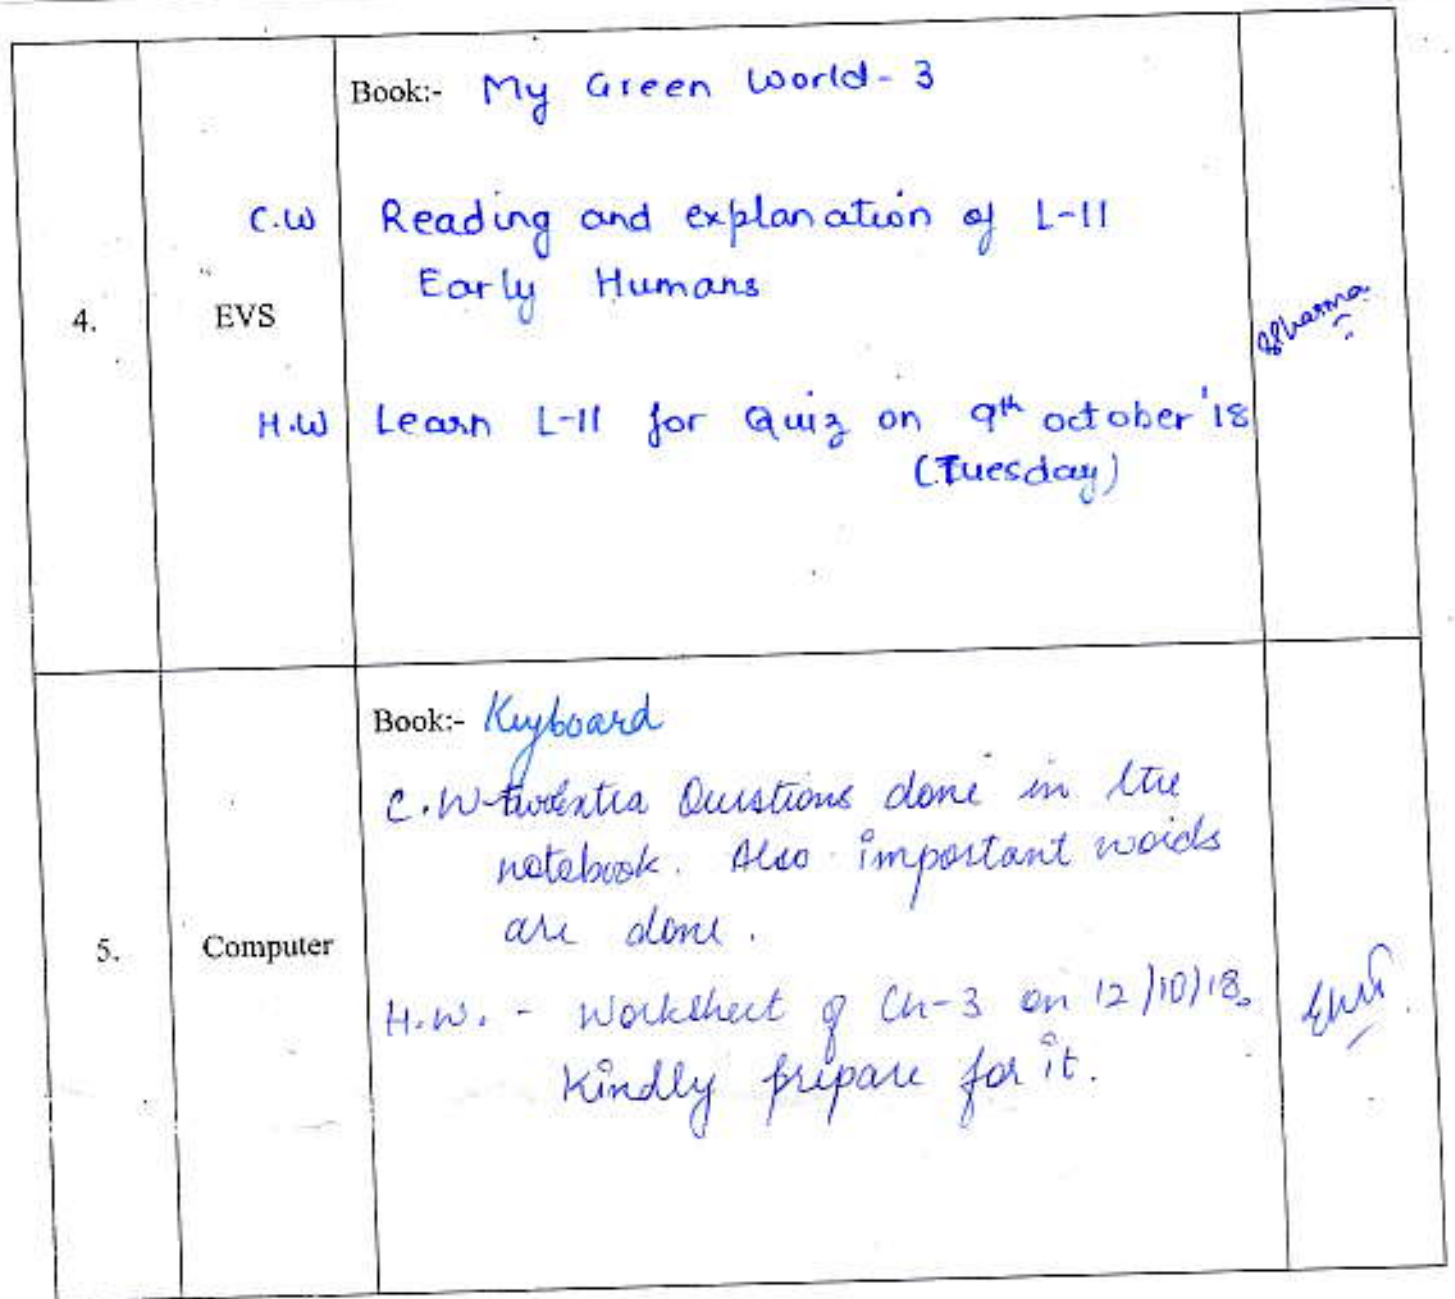 Book:- My Green World - 3
C.W Reading and explanation of L-11
Early Humans
4. EVS
Sharma
H.W Learn L-11 for Quiz on 9th october '18
(Tuesday)
Book:- Keyboard
C.W - two extra Questions done in the
notebook. Also important words
are done.
5. Computer
H.W. - Worksheet of Ch-3 on 12/10/18.
Kindly prepare for it.